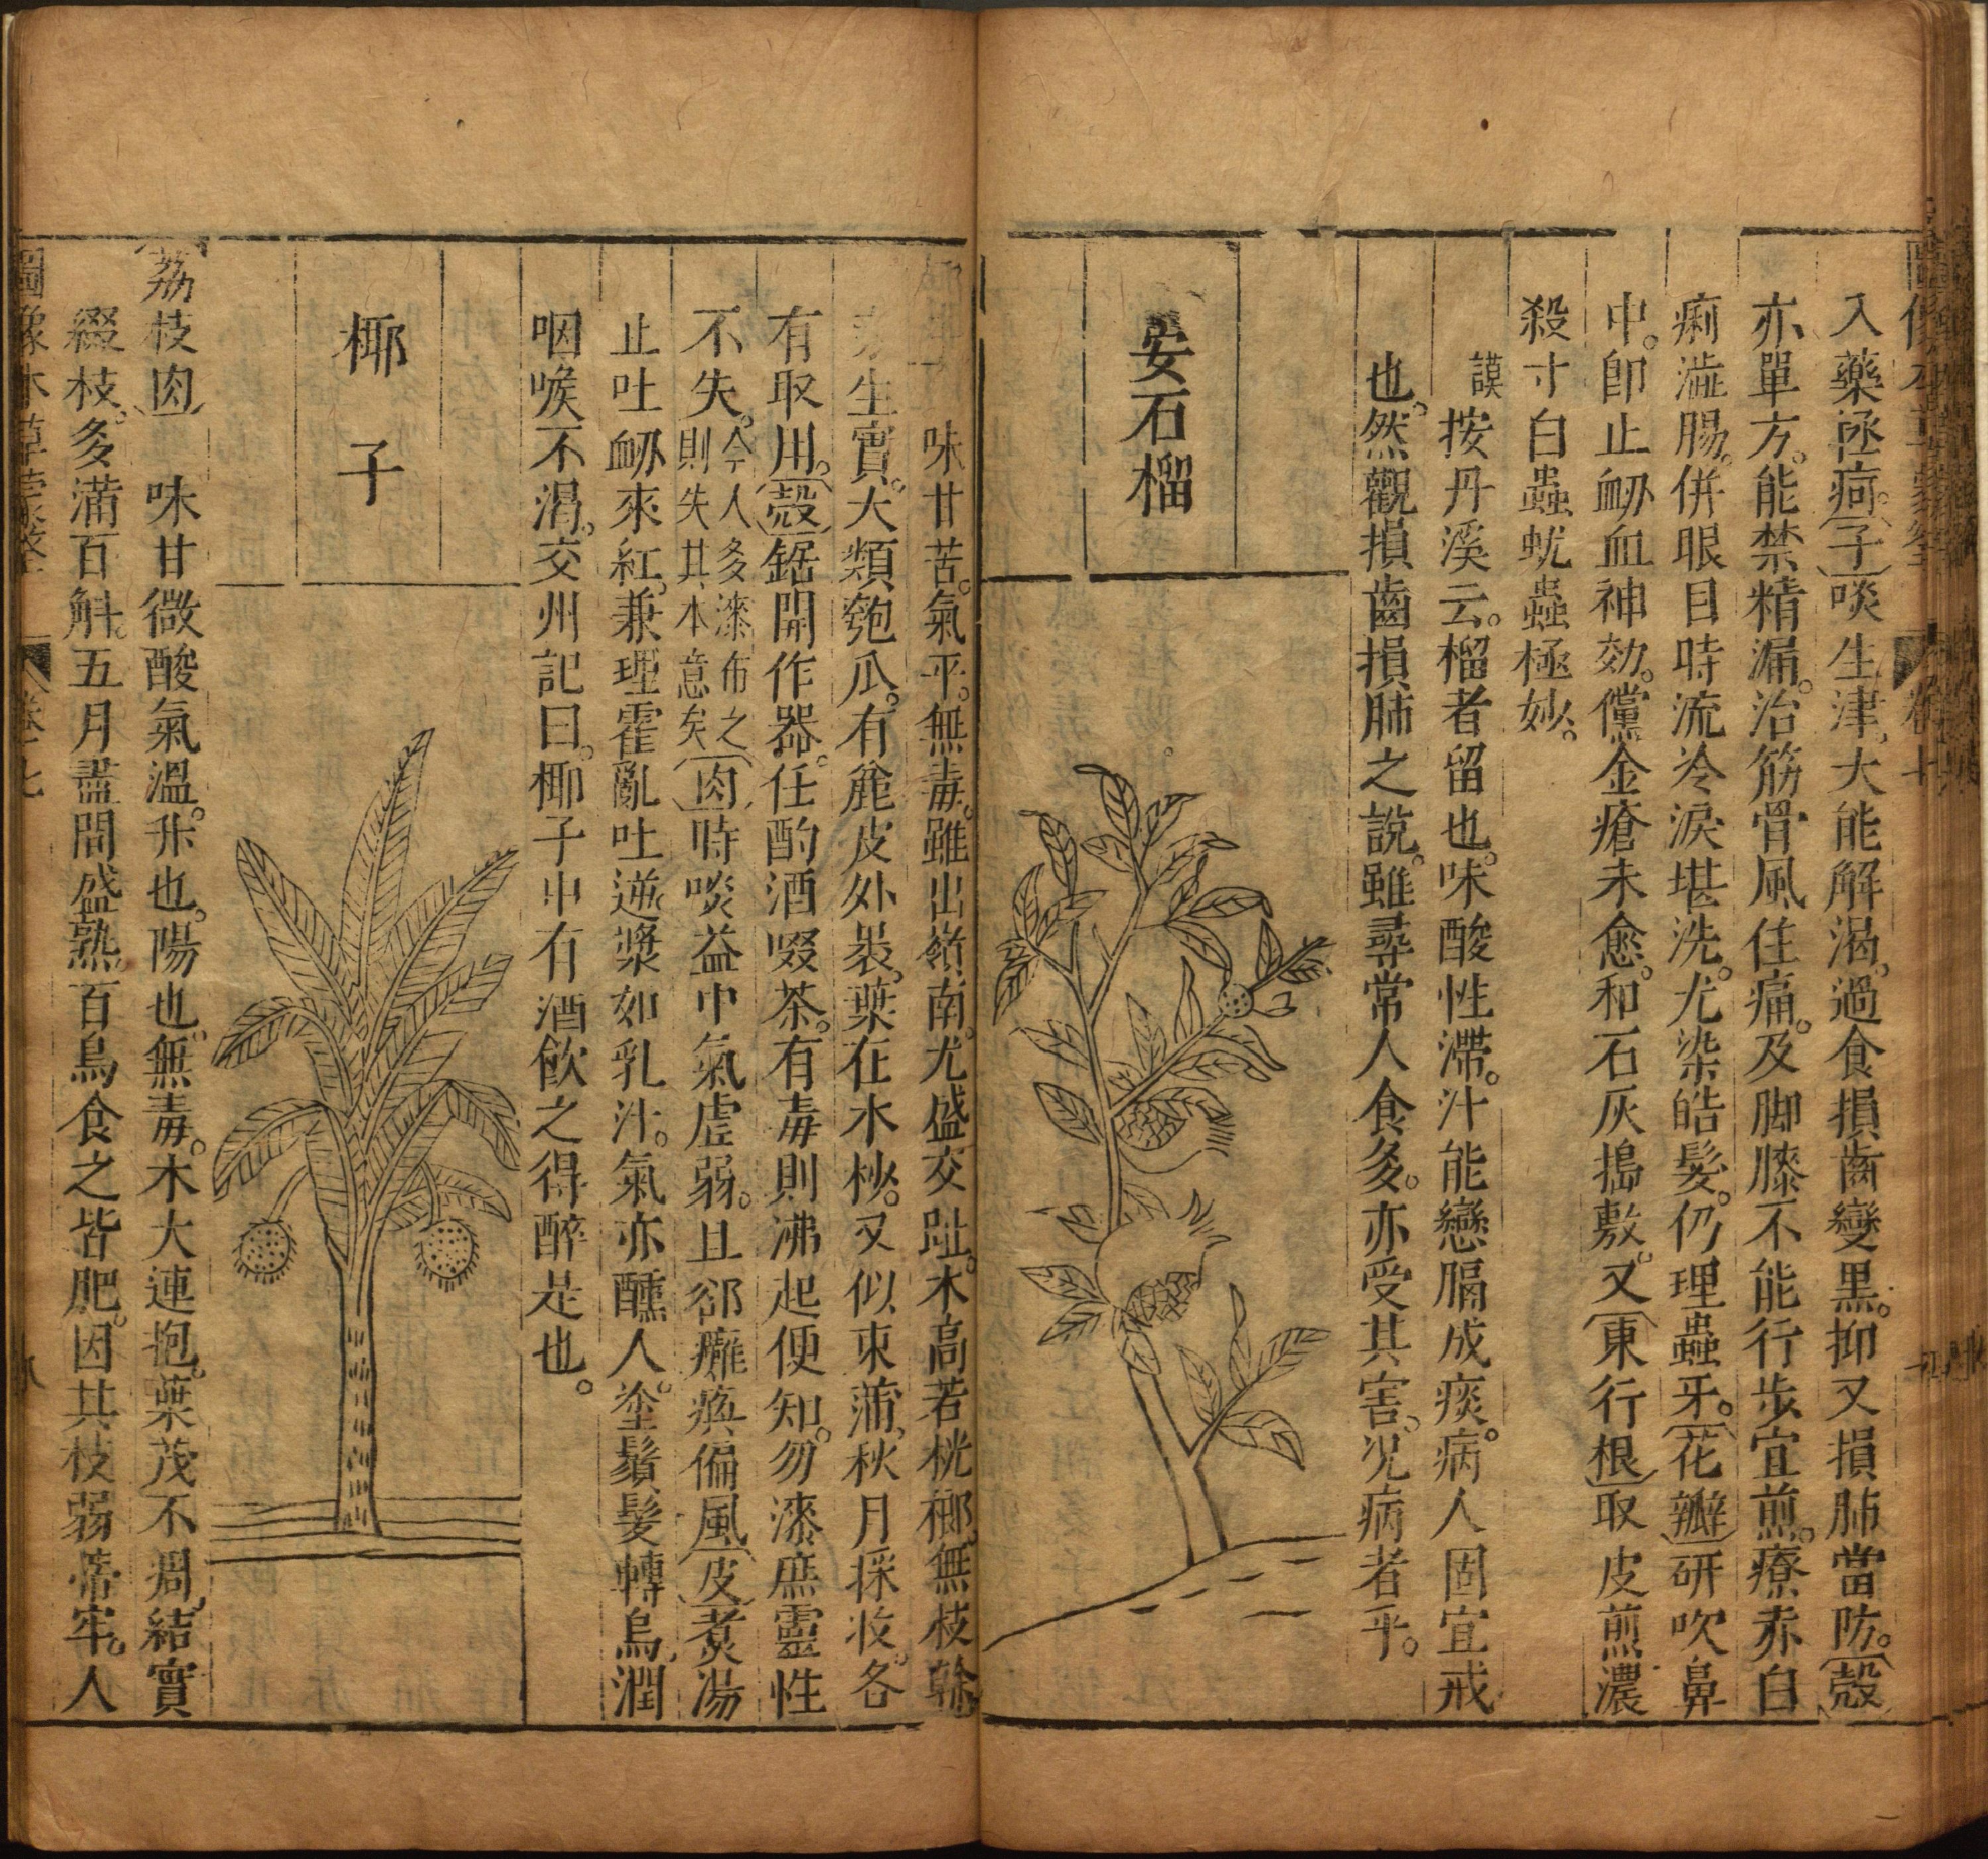 入藥拯疴。子啖生津。大能解渴。過食損齒變黑。抑又損肺當防。殼
亦單方。能禁精漏。治筋骨風住痛。及脚膝不能行步宜煎。療赤白
痢澁腸。併眼目時流冷淚堪洗。尤染皓髮。仍理蟲牙。花瓣研吹鼻
中。卽止衂血神効。儻金瘡未愈。和石灰搗敷。又東行根取皮煎濃
殺寸白蟲蚘蟲極妙。
謨按丹溪云。榴者留也。味酸性滯。汁能戀膈成痰。病人固宜戒
也。然觀損齒損肺之說。雖尋常人食多。亦受其害。况病者乎。
安石榴
味甘苦。氣平。無毒。雖出嶺南。尤盛交趾。木高若桄榔。無枝
生實。大類匏瓜。有麄皮外裝。葉在木杪。又似束蒲。秋月採收。各
有取用。殼鋸開作器。任酌酒啜茶。有毒則沸起便知。勿漆庶靈性
不失。今人多漆布之則失其本意矣肉時啖益中氣虛弱。且郤癱瘓偏風皮煮湯
止吐衂來紅。兼理霍亂吐逆漿如乳汁。氣亦醺人。塗鬚髮轉烏潤
咽喉不渴。交州記曰。椰子中有酒飲之得醉是也。
椰子
荔枝肉 味甘微酸氣溫。升也。陽也。無毒。木大連抱。葉茂不凋。結實
綴枝。多滿百斛。五月盡間盛熟百鳥食之皆肥。因其枝弱蒂牢。人